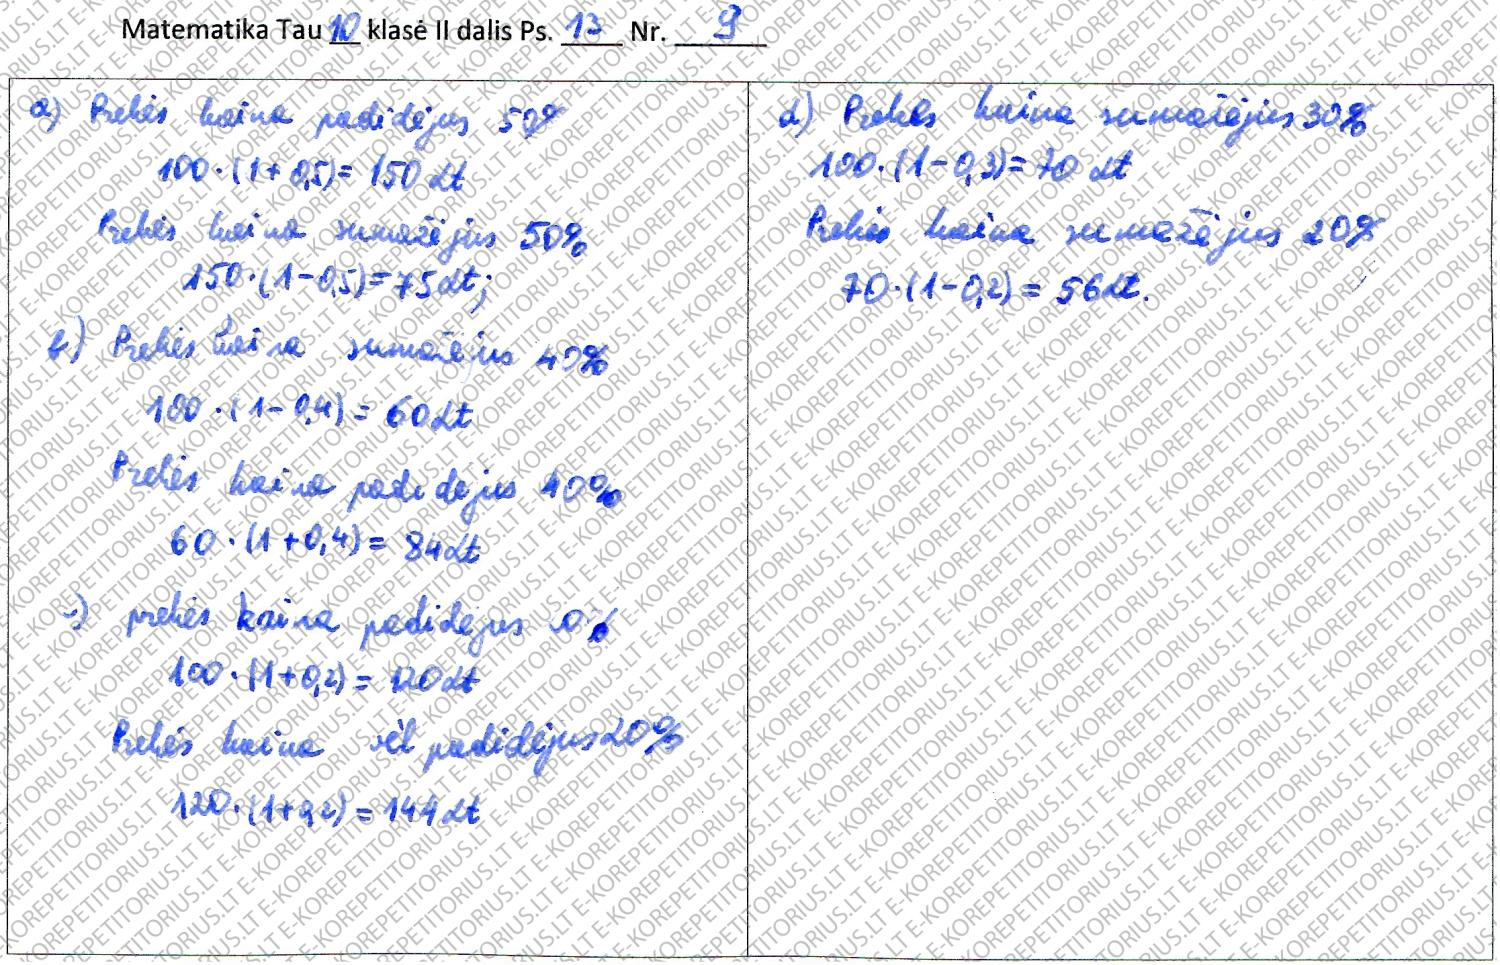 Matematika Tau 10 klasė II dalis Ps. 13 Nr. 9
a) Prekės kaina padidėjus 50%
100·(1+0,5)=150Lt
Prekės kaina sumažėjus 50%
150·(1-0,5)=75Lt;
b) Prekės kaina sumažėjus 40%
100·(1-0,4)=60Lt
Prekės kaina padidėjus 40%
60·(1+0,4)=84Lt
c) prekės kaina padidėjus 0%
100·(1+0,2)=120Lt
Prekės kaina vėl padidėjus 20%
120·(1+0,2)=144Lt
d) Prekės kaina sumažėjus 30%
100·(1-0,3)=70Lt
Prekės kaina sumažėjus 20%
70·(1-0,2)=56Lt.
E-KOREPETITORIUS.LT